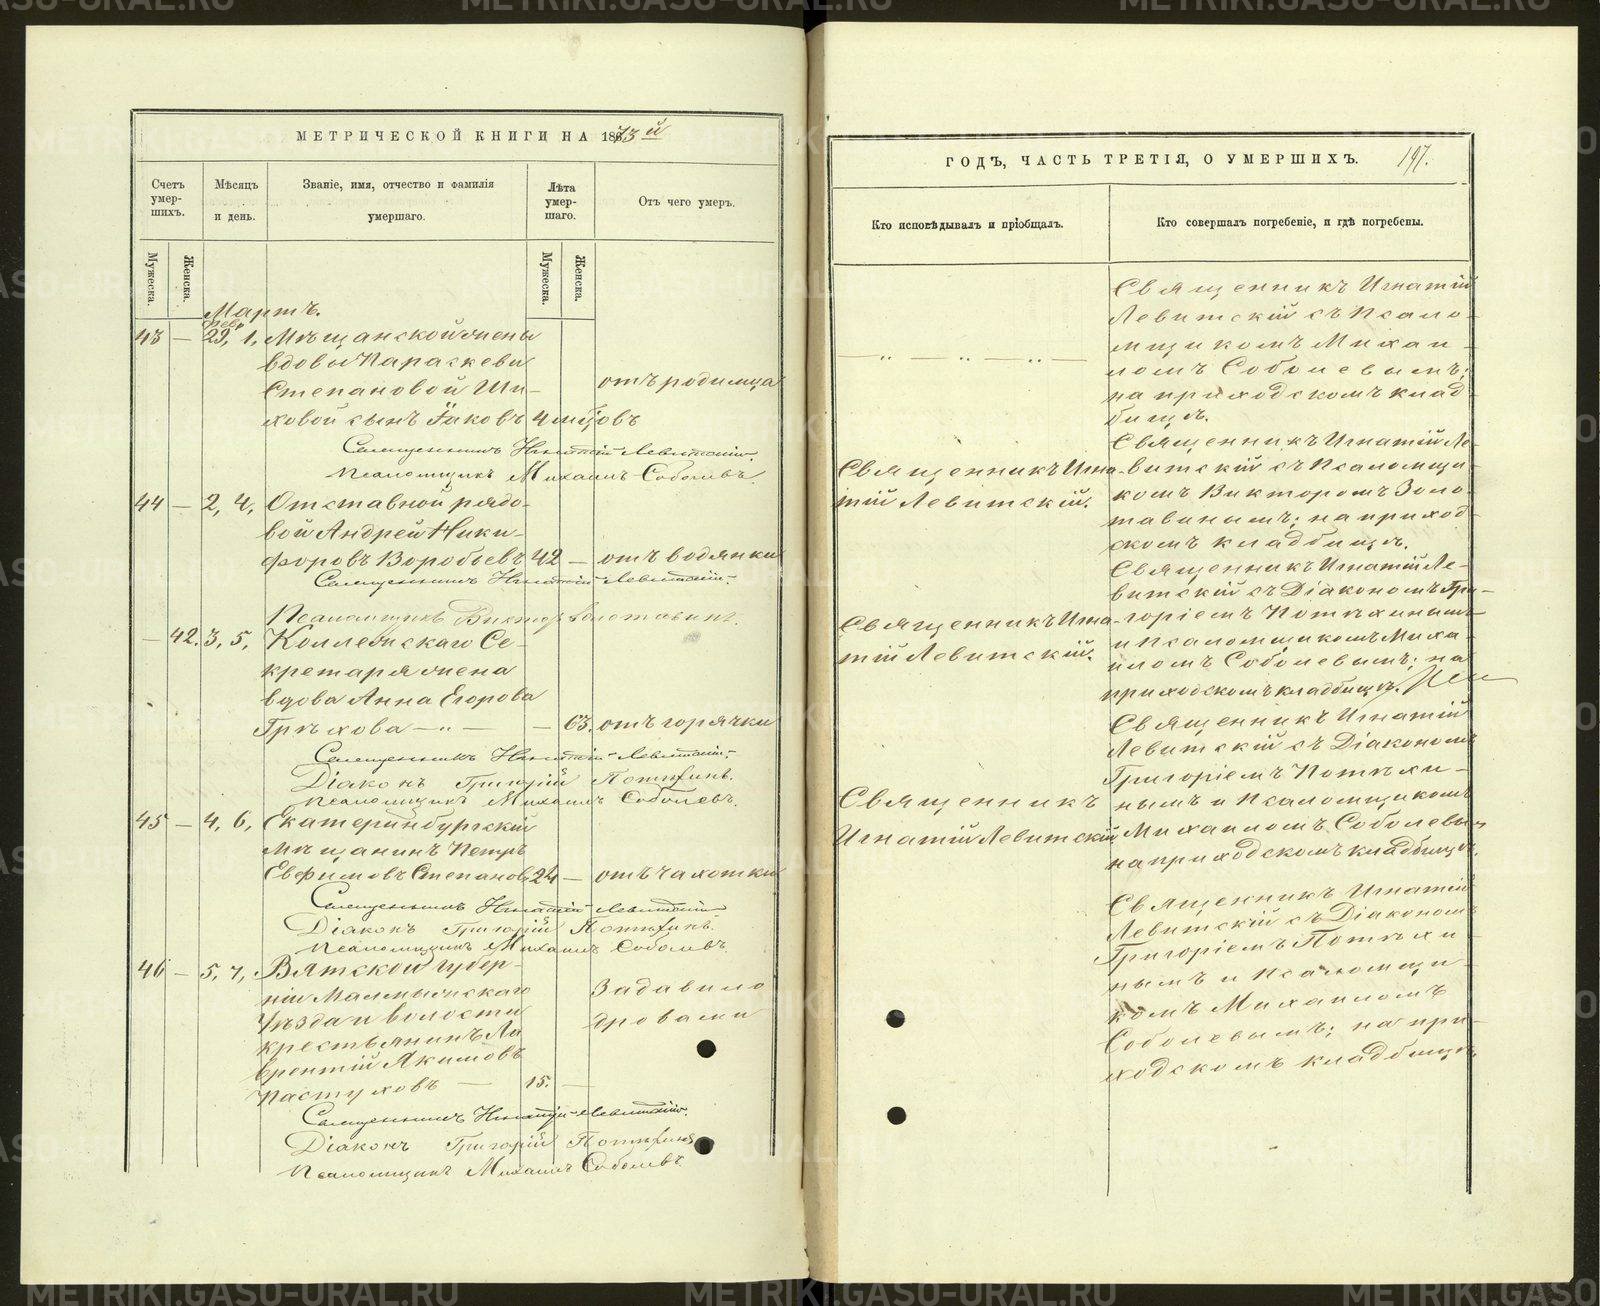 МЕТРИЧЕСКОЙ КНИГИ НА 1873й
Счетъ умер-шихъ.
Мѣсяцъ и день.
Званіе, имя, отчество и фамилія умершаго.
Лѣта умер-шаго.
Отъ чего умеръ.
Мужеска.
Женска.
Мужеска.
Женска.
Мартъ.
Февр
43 — 29, 1, Мѣщанской жены
вдовы Параскевы
Степановой Ши-
ховой сынъ Іаковъ 4 мцовъ
отъ родимца
Священникъ Игнатій Левитскій.
Псаломщикъ Михаилъ Соболевъ.
44 — 2, 4, Отставной рядо-
вой Андрей Ники-
форовъ Воробьевъ 42 — отъ водянки
Священникъ Игнатій Левитскій
Псаломщикъ Викторъ Золотавинъ.
— 42. 3, 5, Коллежскаго Се-
кретаря жена
вдова Анна Егорова
Грѣхова — „ — — 63. отъ горячки
Священникъ Игнатій Левитскій.
Діаконъ Григорій Потѣхинъ.
Псаломщикъ Михаилъ Соболевъ.
45 — 4, 6, Екатеринбургскій
мѣщанинъ Петръ
Евфимовъ Степановъ 24 — отъ чахотки
Священникъ Игнатій Левитскій
Діаконъ Григорій Потѣхинъ.
Псаломщикъ Михаилъ Соболевъ.
46 — 5, 7, Вятской губер-
ніи Малмыжскаго
Уѣзда и волости
крестьянинъ Ла
врентій Якимовъ
Пастуховъ — 15. —
Задавило
дровами
Священникъ Игнатій Левитскій.
Діаконъ Григорій Потѣхинъ
Псаломщикъ Михаилъ Соболевъ.
ГОДЪ, ЧАСТЬ ТРЕТІЯ, О УМЕРШИХЪ. 197.
Кто исповѣдывалъ и пріобщалъ.
Кто совершалъ погребеніе, и гдѣ погребены.
„ — „ — „ —
Священникъ Игнатій
Левитскій съ Псало-
мщикомъ Михаи-
ломъ Соболевымъ;
на приходскомъ клад-
бищѣ.
Священникъ Игна-
тій Левитскій.
Священникъ Игнатій Ле-
витскій съ Псаломщи-
комъ Викторомъ Золо-
тавинымъ; на приход-
скомъ кладбищѣ.
Священникъ Игна-
тій Левитскій.
Священникъ Игнатій Ле-
витскій съ Діакономъ Гри-
горіемъ Потѣхинымъ
и Псаломщикомъ Миха-
иломъ Соболевымъ; на
приходскомъ кладбищѣ.
Священникъ
Игнатій Левитскій
Священникъ Игнатій
Левитскій съ Діакономъ
Григоріемъ Потѣхи-
нымъ и Псаломщикомъ
Михаиломъ Соболевымъ
на приходскомъ кладбищѣ.
Священникъ Игнатій
Левитскій съ Діакономъ
Григоріемъ Потѣхи-
нымъ и Псаломщи-
комъ Михаиломъ
Соболевымъ; на при-
ходскомъ кладбищѣ
METRIKI.GASO-URAL.RU